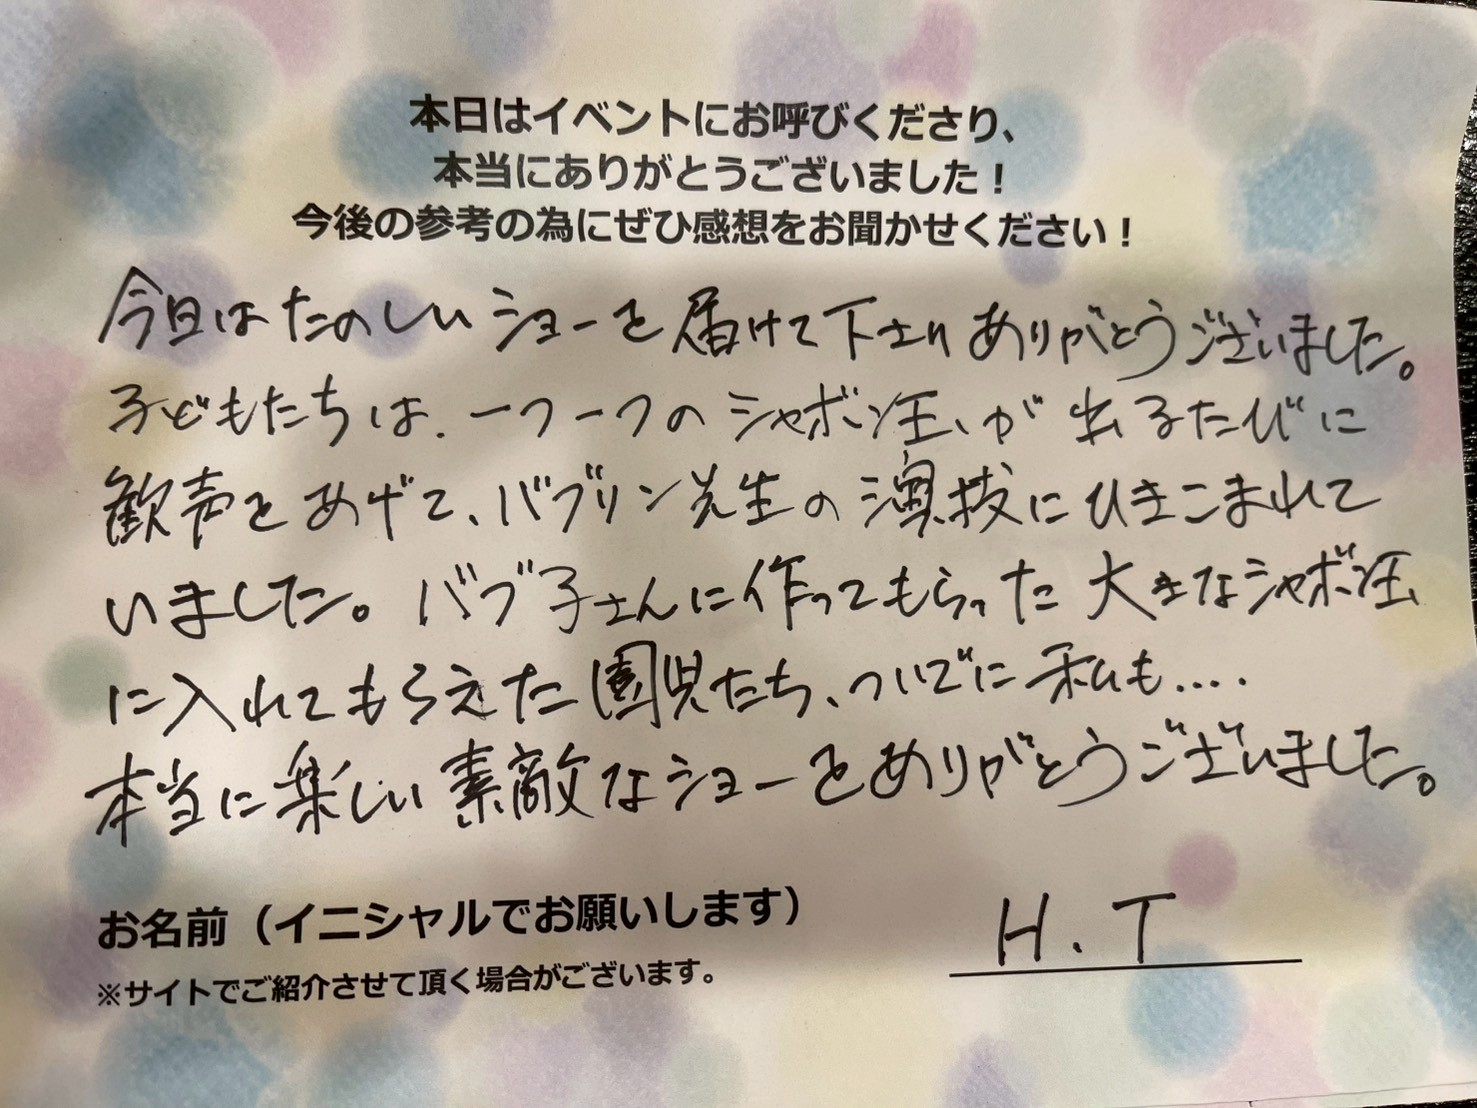 本日はイベントにお呼びくださり、
本当にありがとうございました！
今後の参考の為にぜひ感想をお聞かせください！
今日はたのしいショーを届けて下さりありがとうございました。
子どもたちは、一つ一つのシャボン玉が出るたびに
歓声をあげて、バブリン先生の演技にひきこまれて
いました。バブ子さんに作ってもらった大きなシャボン玉
に入れてもらえた園児たち、ついでに私も....
本当に楽しい素敵なショーをありがとうございました。
お名前（イニシャルでお願いします）
H.T
※サイトでご紹介させて頂く場合がございます。